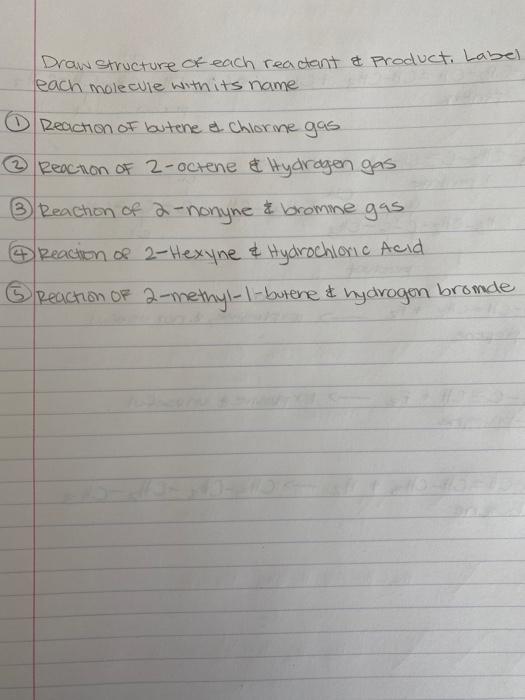 Draw structure of each reactant & Product. Label
each molecule with its name
① Reaction of butene & Chlorine gas
② Reaction of 2-octene & Hydrogen gas
③ Reaction of 2-nonyne & bromine gas
④ Reaction of 2-Hexyne & Hydrochloric Acid
⑤ Reaction of 2-methyl-1-butene & hydrogen bromide